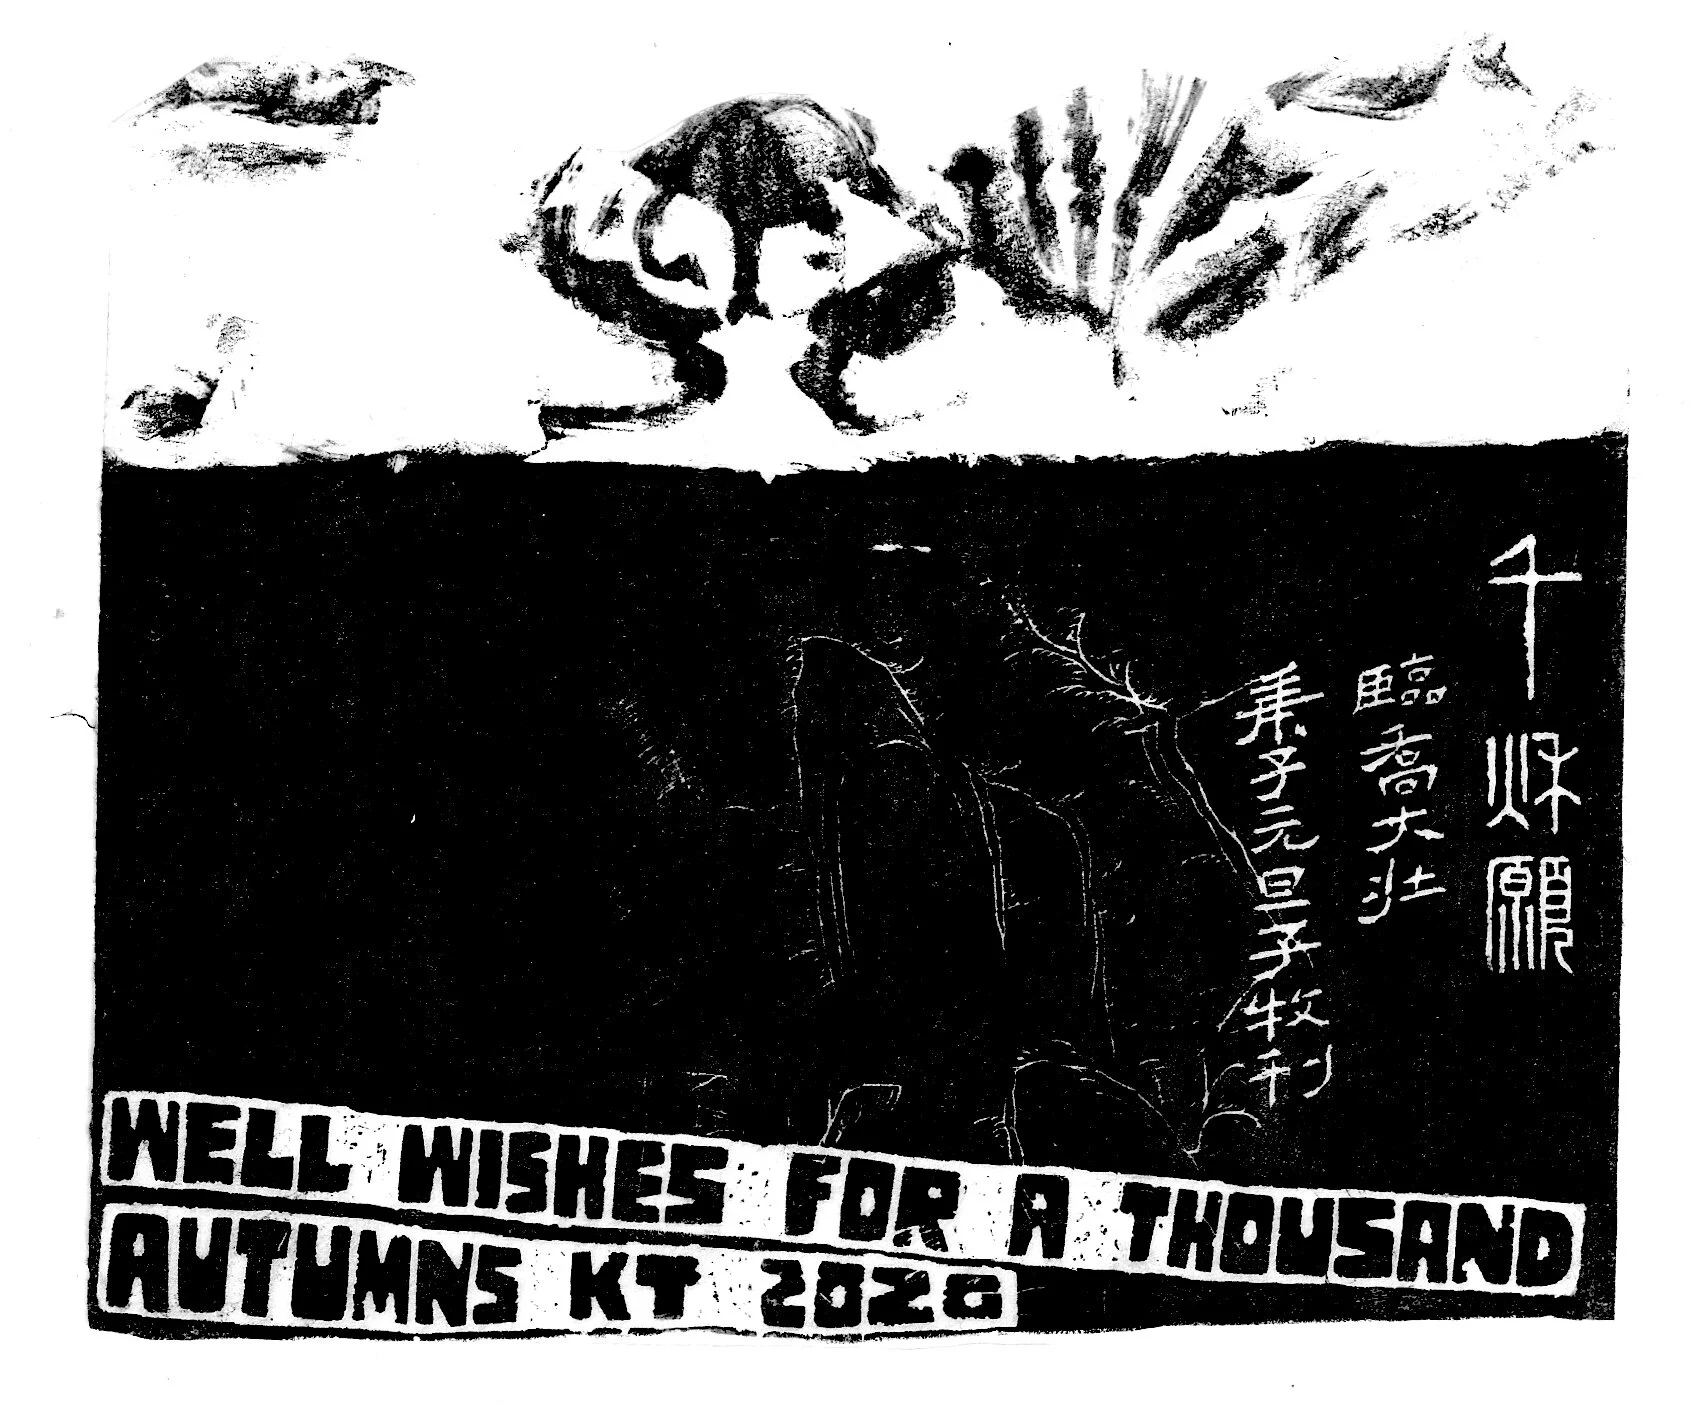 千秌願
臨喬大壯
庚子元旦子牧刊
WELL WISHES FOR A THOUSAND
AUTUMNS KT 2026